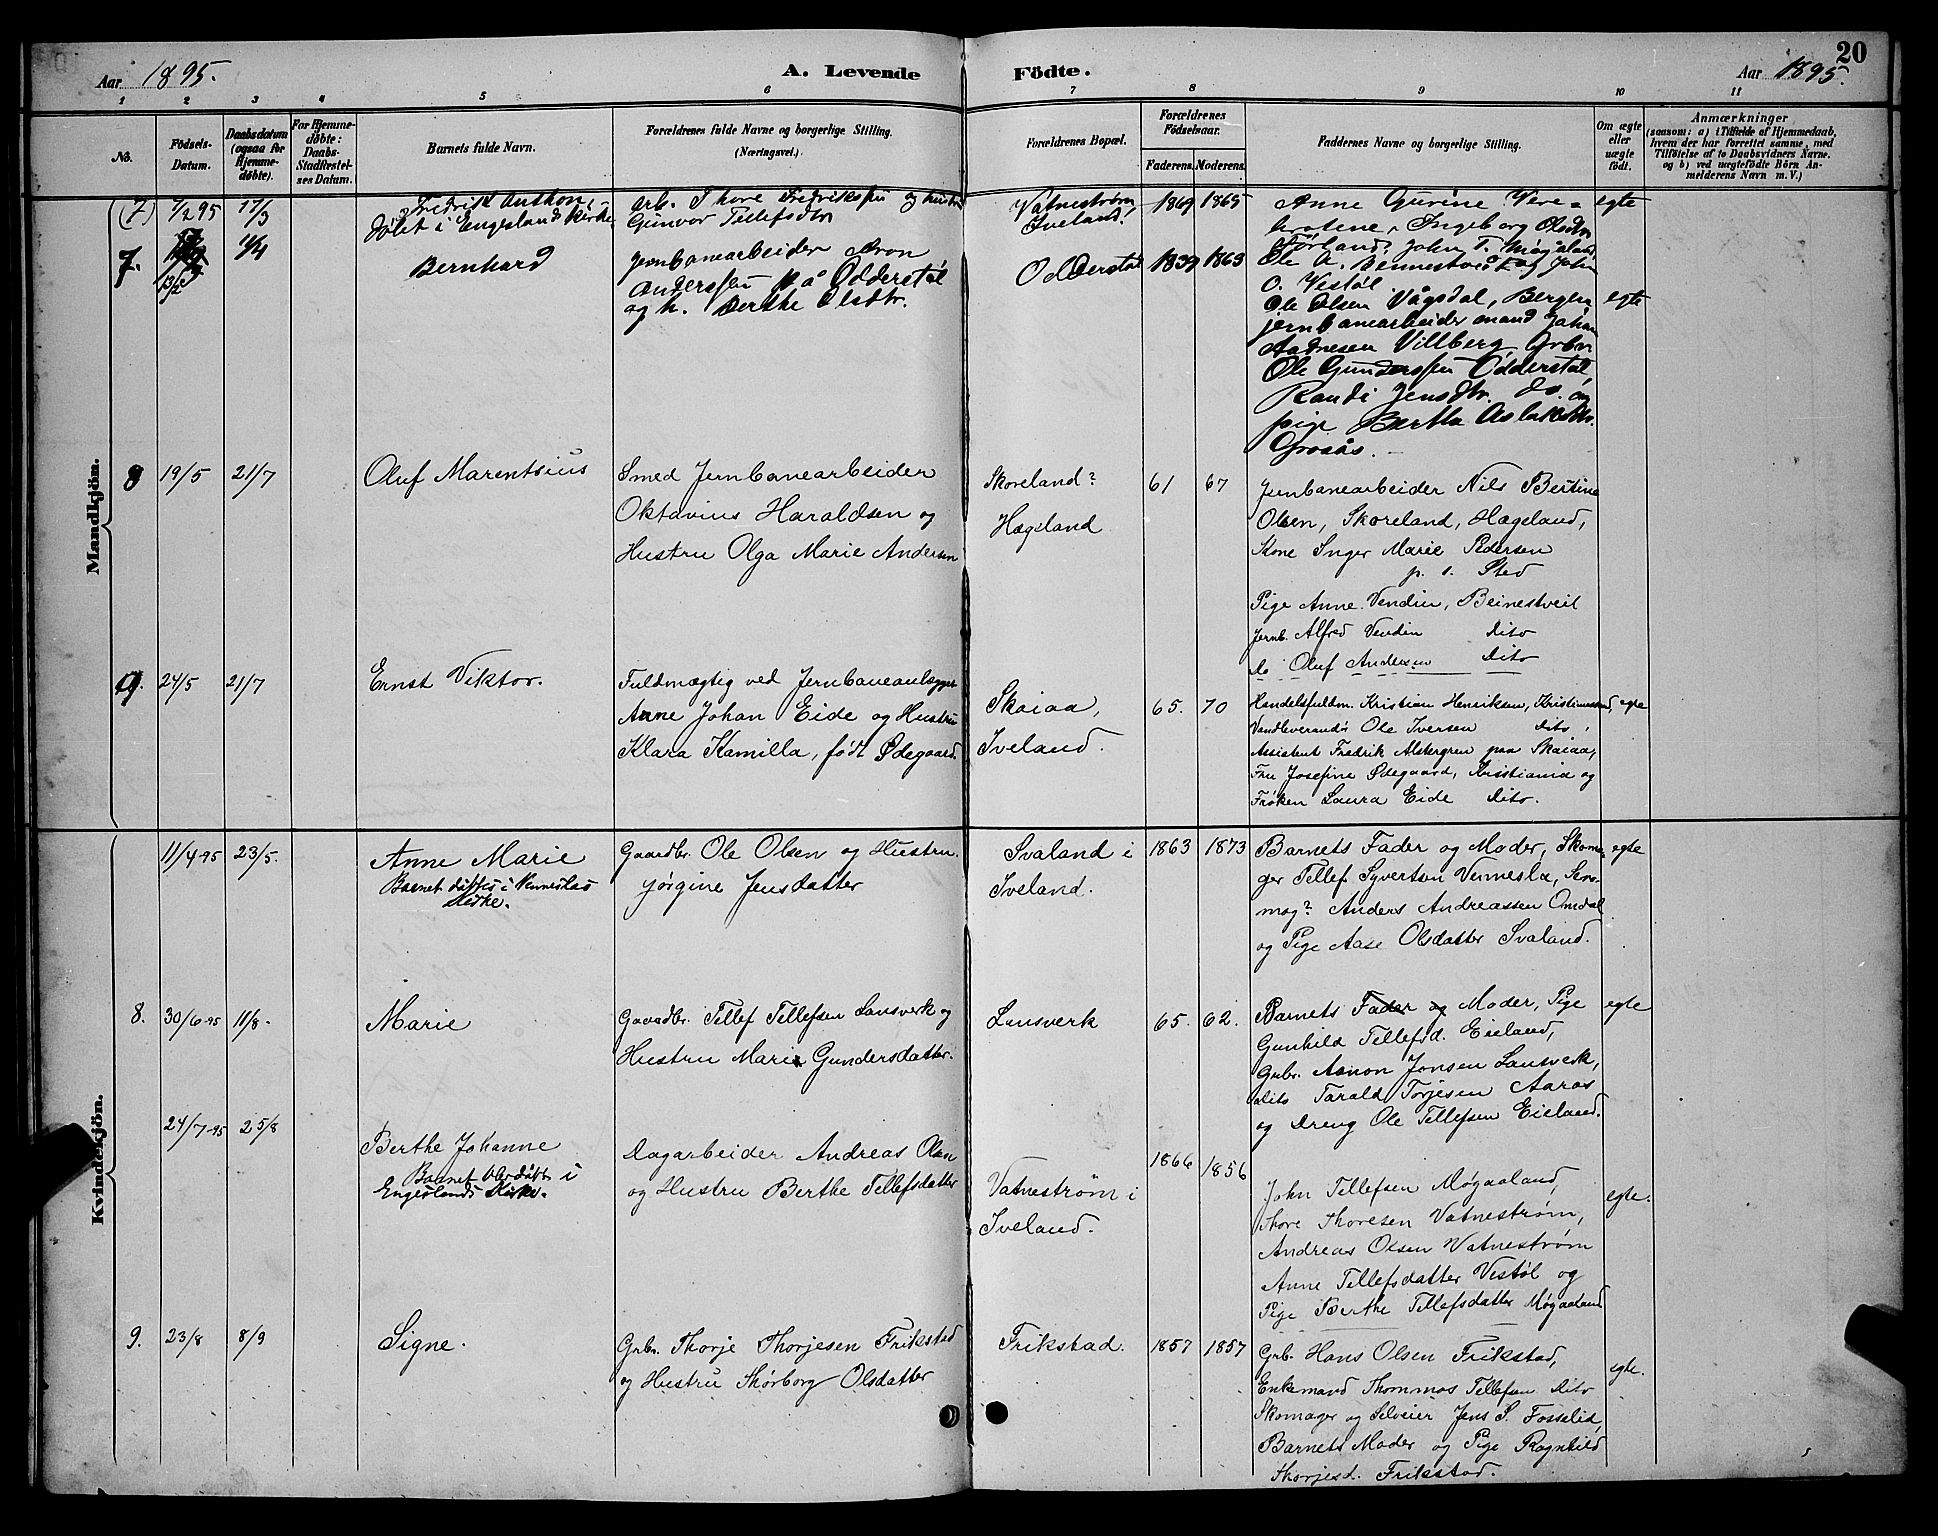 20
Aar 1895.
A. Levende Födte.
Aar 1895.
1 2 3 4 5 6 7 8 9 10 11
No.
Födsels-
Datum.
Daabsdatum
(ogsaa for
Hjemme-
døbte).
For Hjemme-
døbte:
Daabs-
Stadfæstel-
ses Datum.
Barnets fulde Navn.
Forældrenes fulde Navne og borgerlige Stilling.
(Næringsvei.)
Forældrenes Bopæl.
Forældrenes
Födselsaar.
Faderens. Moderens.
Faddernes Navne og borgerlige Stilling.
Om ægte
eller
uægte
født.
Anmærkninger
(saasom: a) i Tilfælde af Hjemmedaab,
hvem der har forrettet samme, med
Tilføielse af to Daabsvidners Navne.
og b) ved uægtefødte Börn An-
melderens Navn m. V.)
Mandkjön.
(7) 7/2 95 17/3
Fredrik Anthon,
døbt i Engesland Kirke
Arb. Thore Fredriksen og hustru
Gunvor Tellefsdtr
Vatnestrøm,
Iveland.
1869 1865
Anne Gurine Vere-
krotene, Ingeborg Olsdtr
Førland, John T. Møgaland,
Ole A. Bennestveit og John
O. Vestøl
egte
7.
13/2
14/4
Bernhard
Jernbanearbeider Aron
Anderssen på Odderstøl
og h. Berthe Olsdtr.
Odderstøl
1839 1863
Ole Olsen Vågsdal, Bergen
jernbanearbeider mand Johan
Aadnesen Villberg Grbr.
Ole Gunderssen Odderstøl
Randi Jensdtr. do. og
pige Bertha Aslaksdtr.
Grosås.
egte
8 19/5 21/7
Oluf Marentsius
Smed Jernbanearbeider
Oktavius Haraldsen og
Hustru Olga Marie Andersen
Skoreland?
Hægeland
61 67
Jernbanearbeider Nils Bertine
Olsen, Skoreland, Hægeland,
Kone Inger Marie Pedersen
p. s. Sted
Pige Anne Vendin, Beinestveit
Jernb. Alfred Vendin Dito
do Oluf Andersen Dito
9. 24/5 21/7
Ernst Viktor.
Fuldmægtig ved Jernbaneanlægget
Arne Johan Eide og Hustru
Klara Kamilla, født Ødegaard.
Skaiaa,
Iveland.
65. 70
Handelsfuldm. Kristian Henriksen, Kristianssand,
Vandleverandø Ole Iversen Dito,
Assistent Fredrik Alstergren paa Skaiaa,
Fru Josefine Ødegaard, Kristiania og
Frøken Laura Eide Dito.
egte
Kvindekjön.
11/4-95 23/5.
Anne Marie
Barnet døbtes i Vennesla
Kirke.
Gaardbr. Ole Olsen og Hustru
Jørgine Jensdatter
Svaland i
Iveland.
1863 1873
Barnets Fader og Moder, Skoma-
ger Tellef Syvertsen Vennesla,
mag? Anders Andreassen Omdal
og Pige Aase Olsdatter Svaland.
egte
8. 30/6-95 11/8.
Marie
Gaardbr. Tellef Tellefsen Lansverk og
Hustru Marie Gundersdatter.
Lansverk
65. 62.
Barnets Fader og Moder, Pige
Gunhild Tellefsd. Eieland,
Grbr. Aanon Jonsen Lansverk,
dito Tarald Torjesen Aaraas
og Dreng Ole Tellefsen Eieland.
egte
24/7-95 25/8
Berthe Johanne
Barnet blev døbt i
Engeslands Kirke.
Dagarbeider Andreas Olsen
og Hustru Berthe Tellefsdatter
Vatnestrøm i
Iveland.
1866 1856
John Tellefsen Møgaaland,
Thore Thoresen Vatnestrøm,
Andreas Olsen Vatnestrøm
Anne Tellefsdatter Vestøl og
Pige Berthe Tellefsdatter Møgaaland
egte.
9. 23/8 8/9
Signe.
Grbr. Thorje Thorjesen Frikstad
og Hustru Thorborg Olsdatter
Frikstad.
1857 1857
Grb. Hans Olsen Frikstad,
Enkemand Thommas Tellefsen Dito
Skomager og Selveier Jens S. Fosselid,
Barnets Moder og Pige Ragnhild
Thorjesd. Frikstad.
egte.